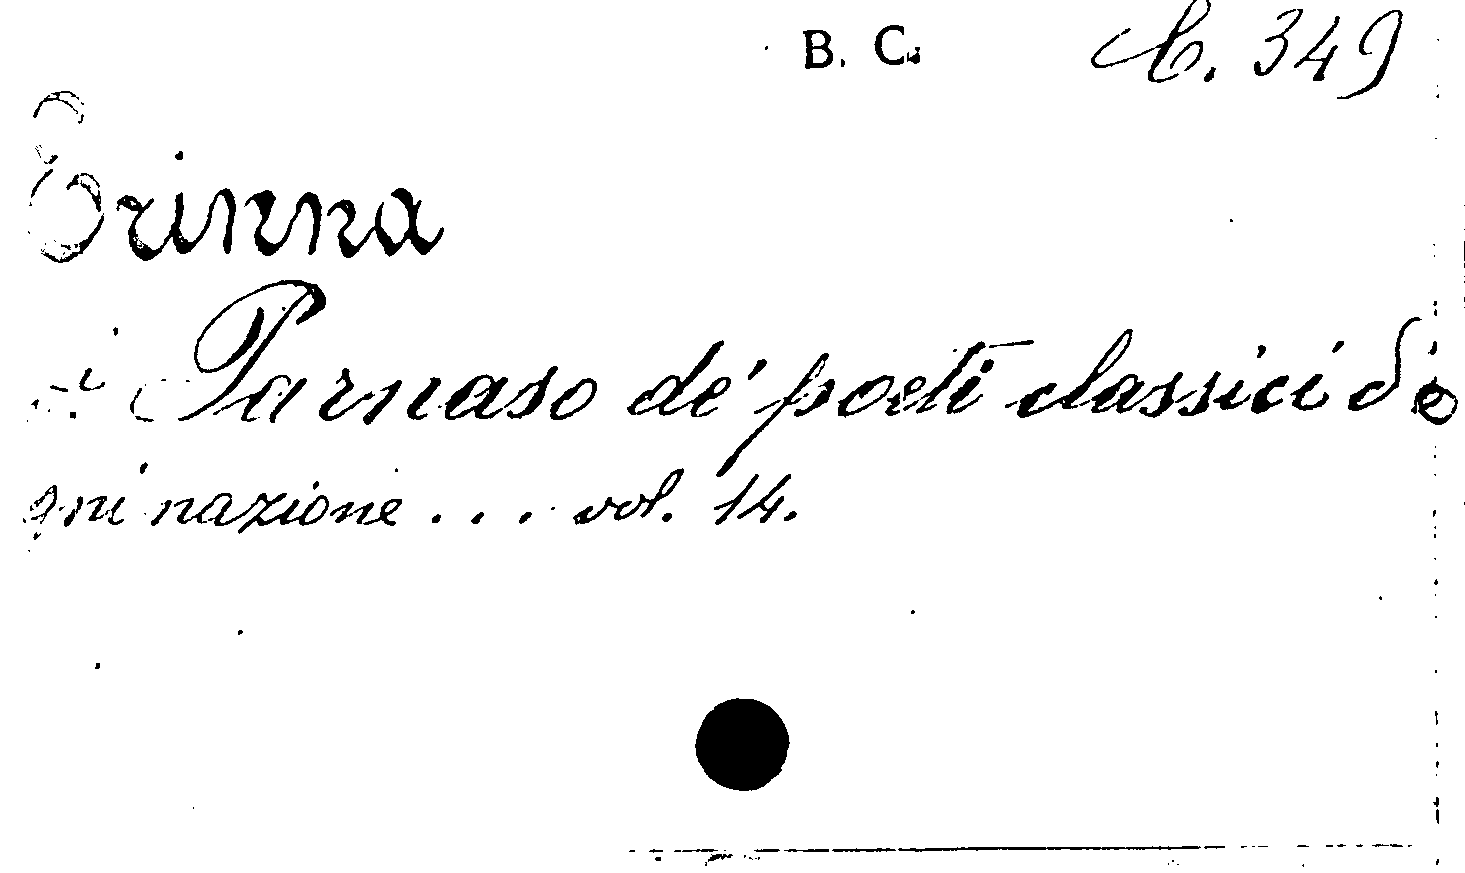 B. C. C. 349
Erinna
Parnaso de' poeti classici d'o
gni nazione . . . vol. 14.